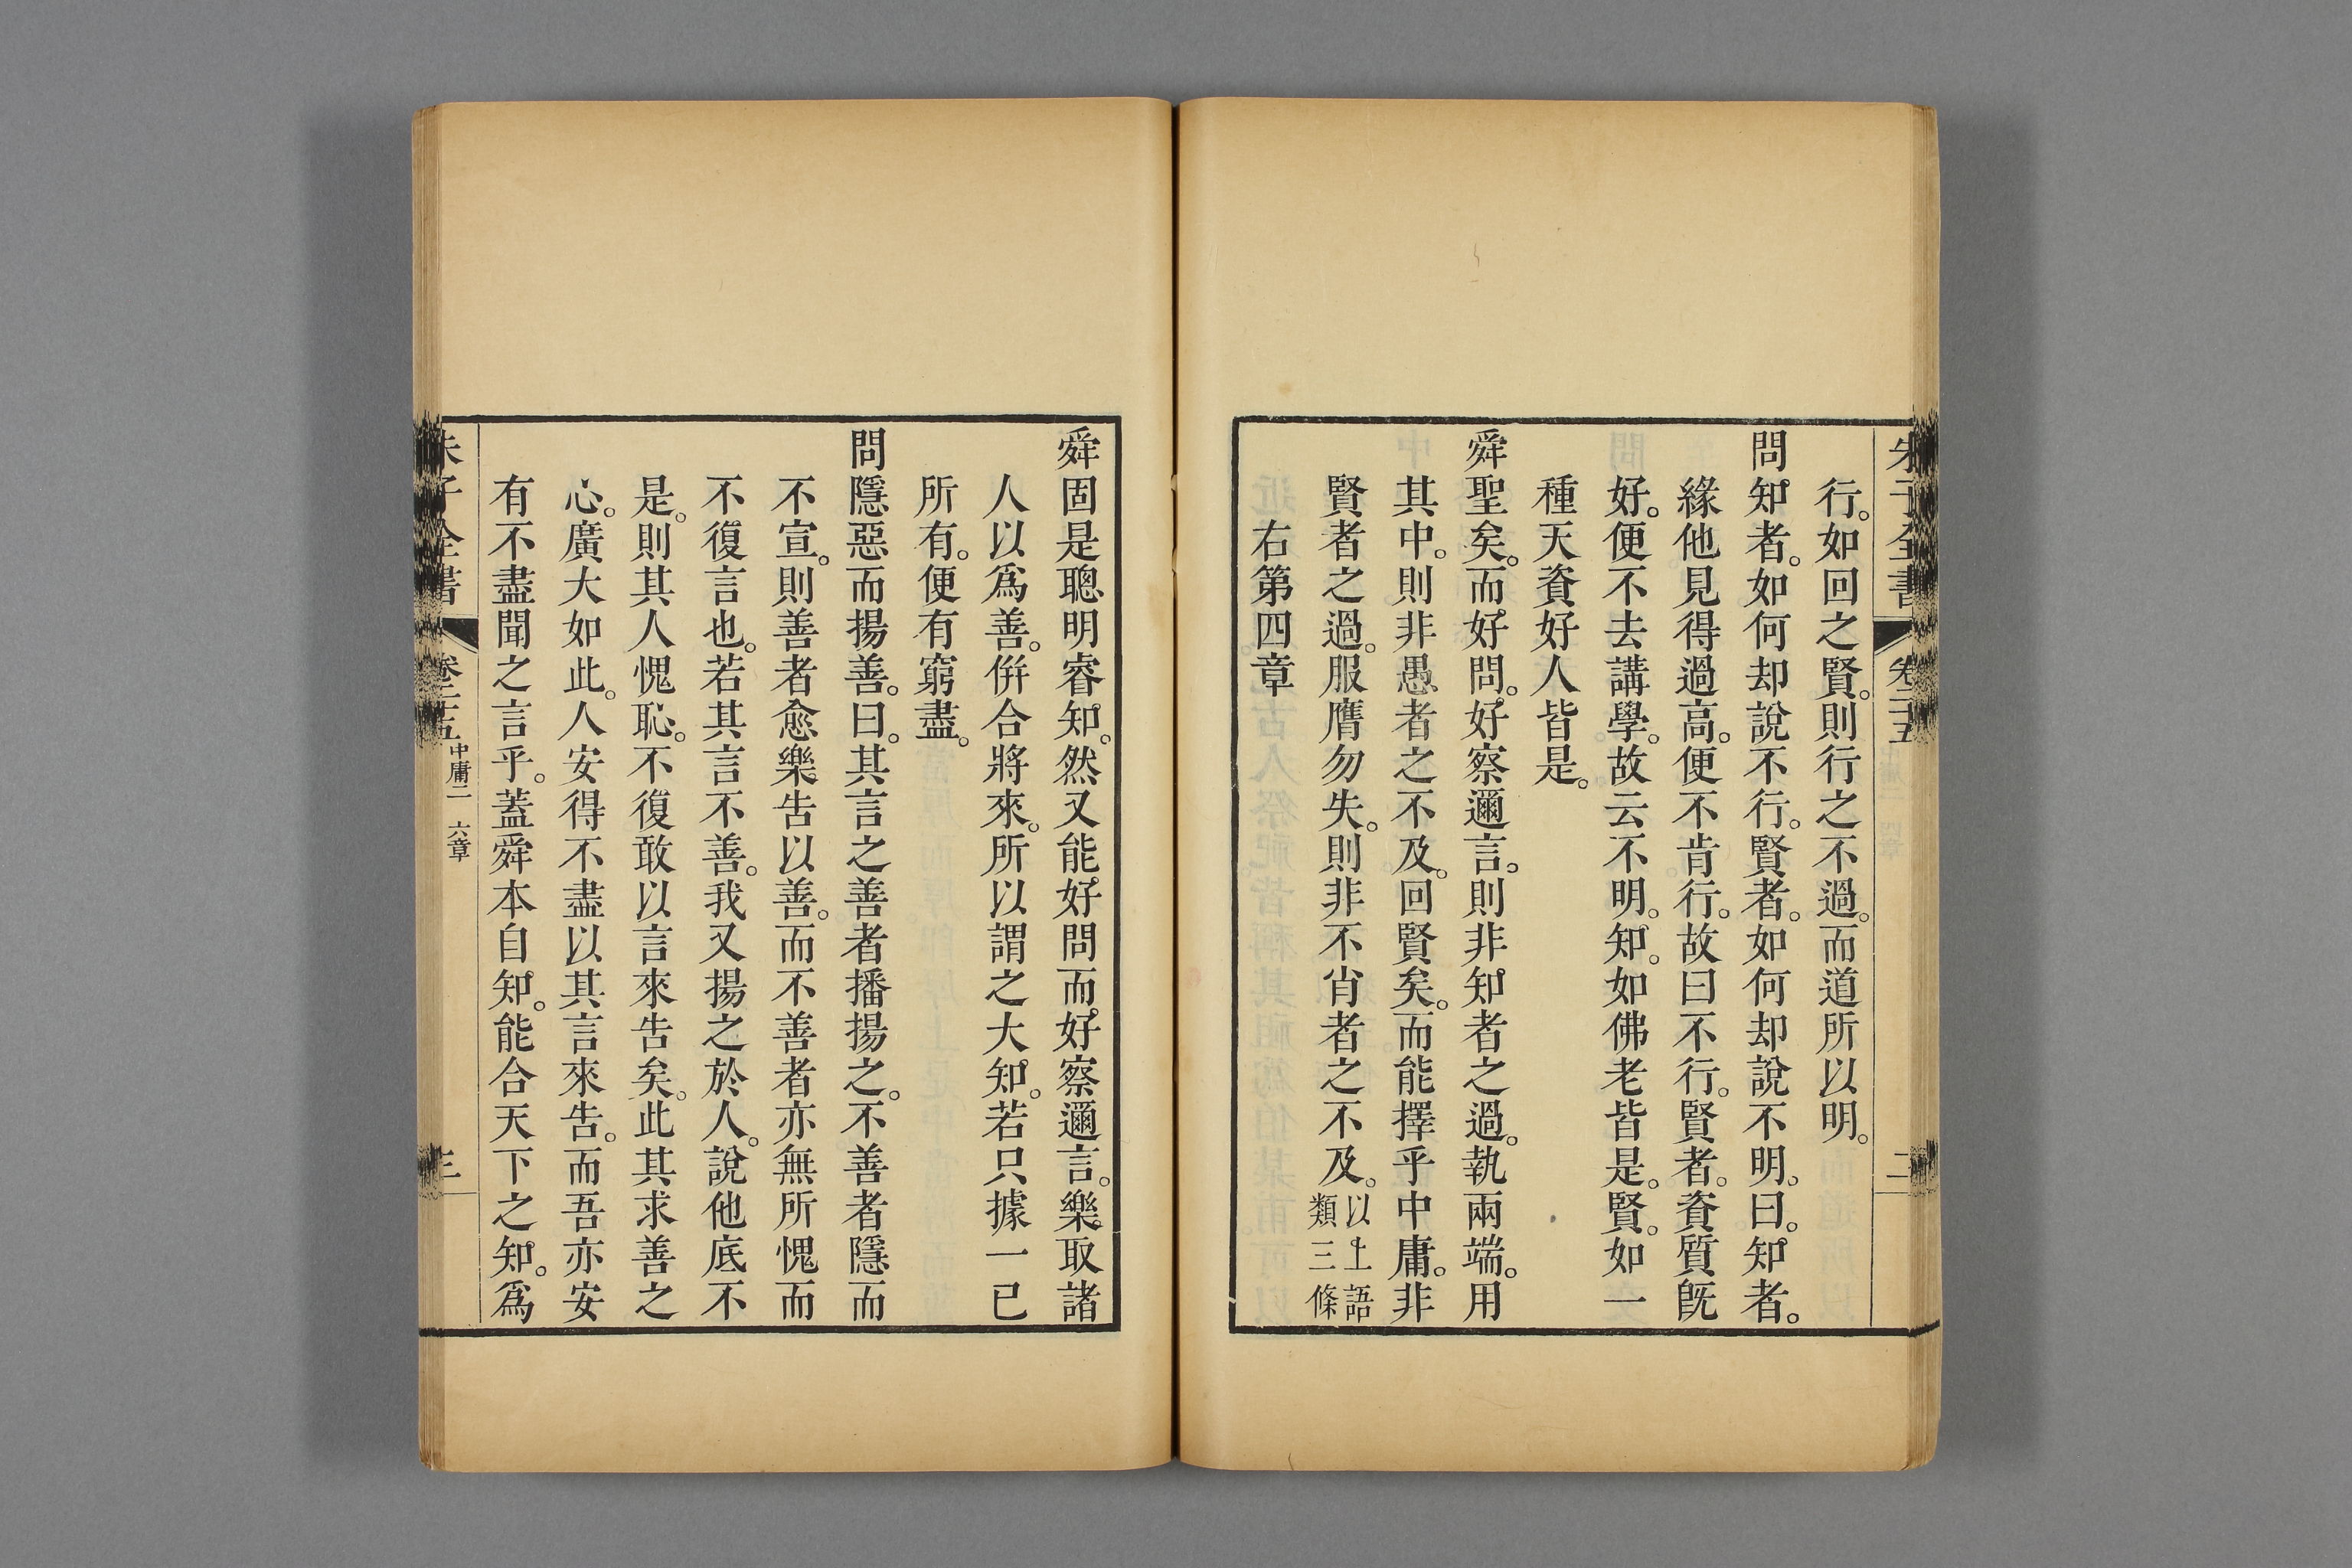 朱子全書 卷二十五 二
行。如回之賢。則行之不過。而道所以明。
問知者。如何却說不行。賢者。如何却說不明。曰。知者。
緣他見得過高。便不肯行。故曰不行。賢者。資質旣
好。便不去講學。故云不明。知。如佛老皆是。賢。如一
種天資好人皆是。
舜聖矣。而好問。好察邇言。則非知者之過。執兩端。用
其中。則非愚者之不及。回賢矣。而能擇乎中庸。非
賢者之過。服膺勿失。則非不肖者之不及。以上語類三條
右第四章
舜固是聰明睿知。然又能好問而好察邇言。樂取諸
人以爲善。倂合將來。所以謂之大知。若只據一己
所有。便有窮盡。
問隱惡而揚善。曰。其言之善者播揚之。不善者隱而
不宣。則善者愈樂告以善。而不善者亦無所愧而
不復言也。若其言不善。我又揚之於人。說他底不
是。則其人愧恥。不復敢以言來告矣。此其求善之
心。廣大如此。人安得不盡以其言來告。而吾亦安
有不盡聞之言乎。蓋舜本自知。能合天下之知。爲
朱子全書 卷二十五 中庸二 六章 三